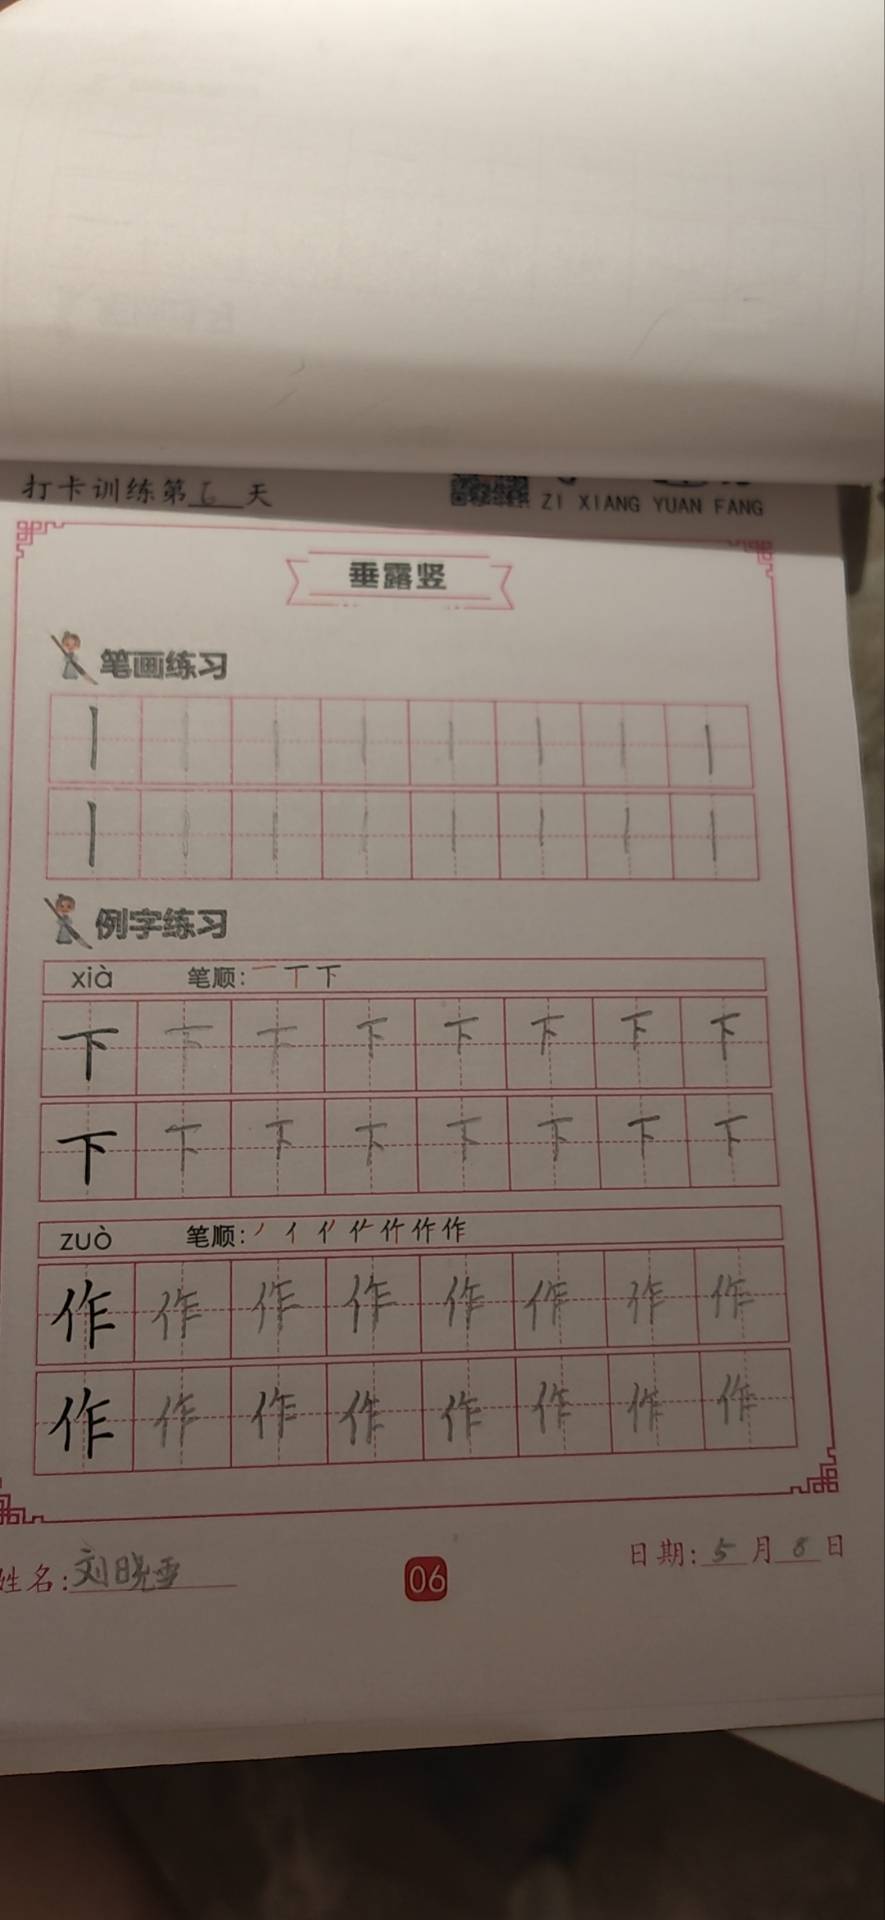 打卡训练第6天
ZI XIANG YUAN FANG
垂露竖
笔画练习
丨 丨 丨 丨 丨 丨 丨 丨
丨 丨 丨 丨 丨 丨 丨 丨
例字练习
xià 笔顺: 一 丅 下
下 下 下 下 下 下 下 下
下 下 下 下 下 下 下 下
zuò 笔顺:
作 作 作 作 作 作 作 作
作 作 作 作 作 作 作 作
姓名:刘晓雪
06
日期:5月8日